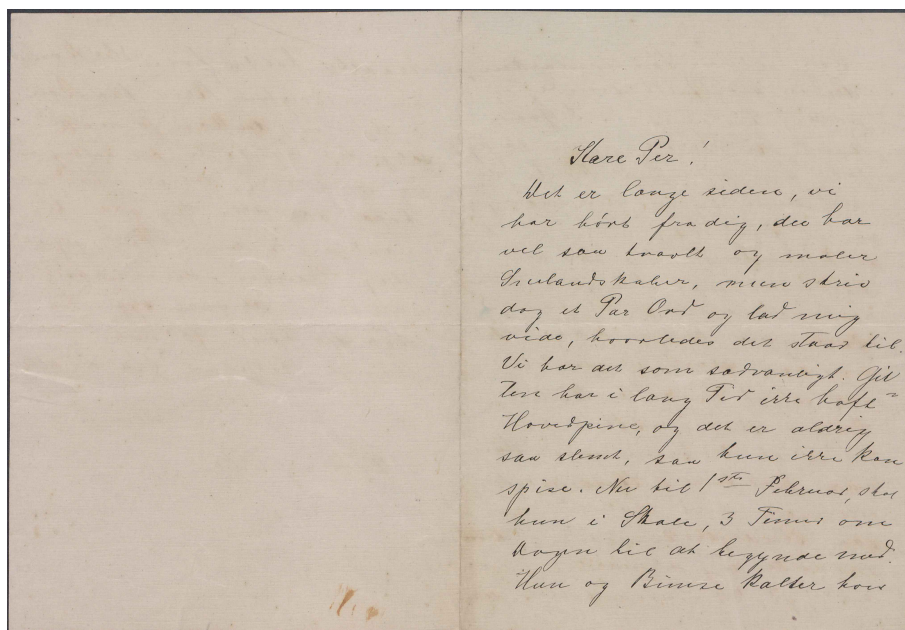 Kære Per!
Det er længe siden, vi
har hørt fra dig, du har
vel saa travlt og maler
Snelandskaber, men skriv
dog et Par Ord og lad mig
vide, hvorledes det staar til.
Vi har det som sædvanligt. Git
ten har i lang Tid ikke haft
Hovedpine, og det er aldrig
saa slemt, saa hun ikke kan
spise. Nu til 1ste Februar, skal
hun i Skole, 3 Timer om
Dagen til at begynde med.
Hun og Bimse kalter hos